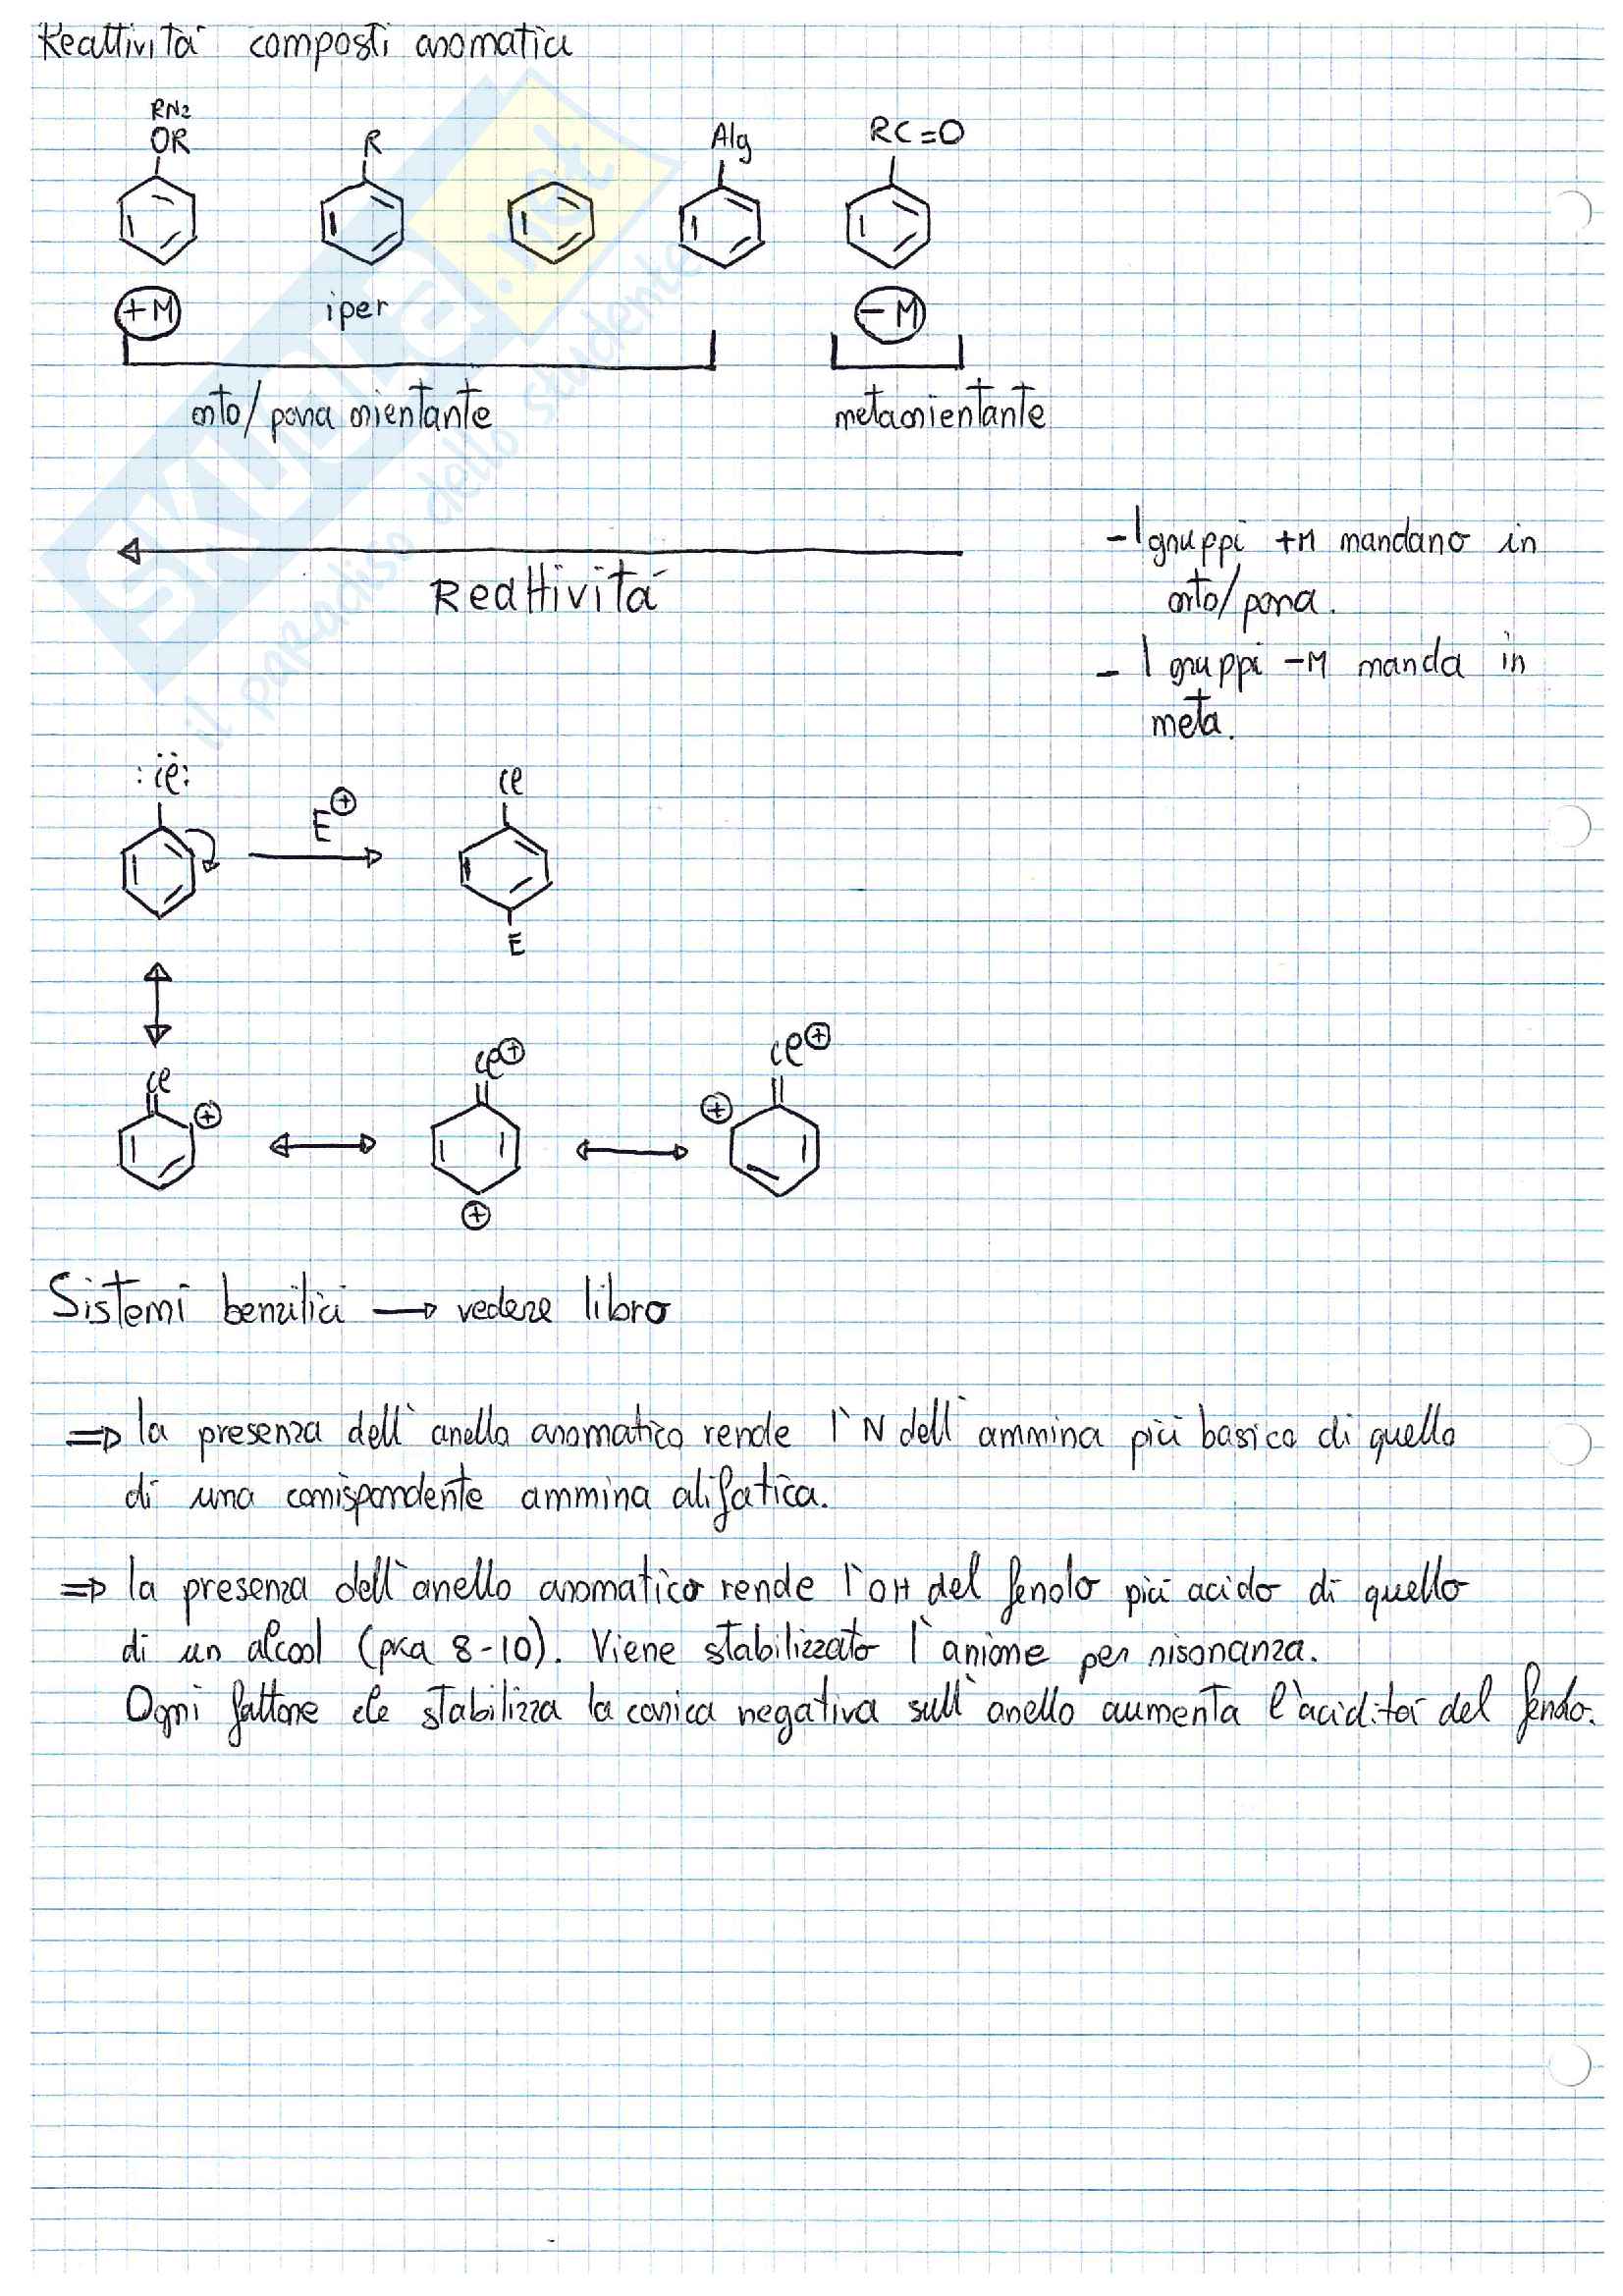 Reattività composti aromatici
RN2
OR
R
Alg
RC=O
+M
iper
-M
orto/para orientante
metaorientante
- I gruppi +M mandano in
orto/para.
Reattività
- I gruppi -M manda in
meta.
:Cl:
E+
Cl
E
Cl
+
Cl+
+
Cl+
+
Sistemi benzilici → vedere libro
⇒ la presenza dell'anello aromatico rende l'N dell'ammina più basico di quello
di una corrispondente ammina alifatica.
⇒ la presenza dell'anello aromatico rende l'OH del fenolo più acido di quello
di un alcool (pKa 8-10). Viene stabilizzato l'anione per risonanza.
Ogni fattore che stabilizza la carica negativa sull'anello aumenta l'acidità del fenolo.
SKUOLA.net
il paradiso dello studente